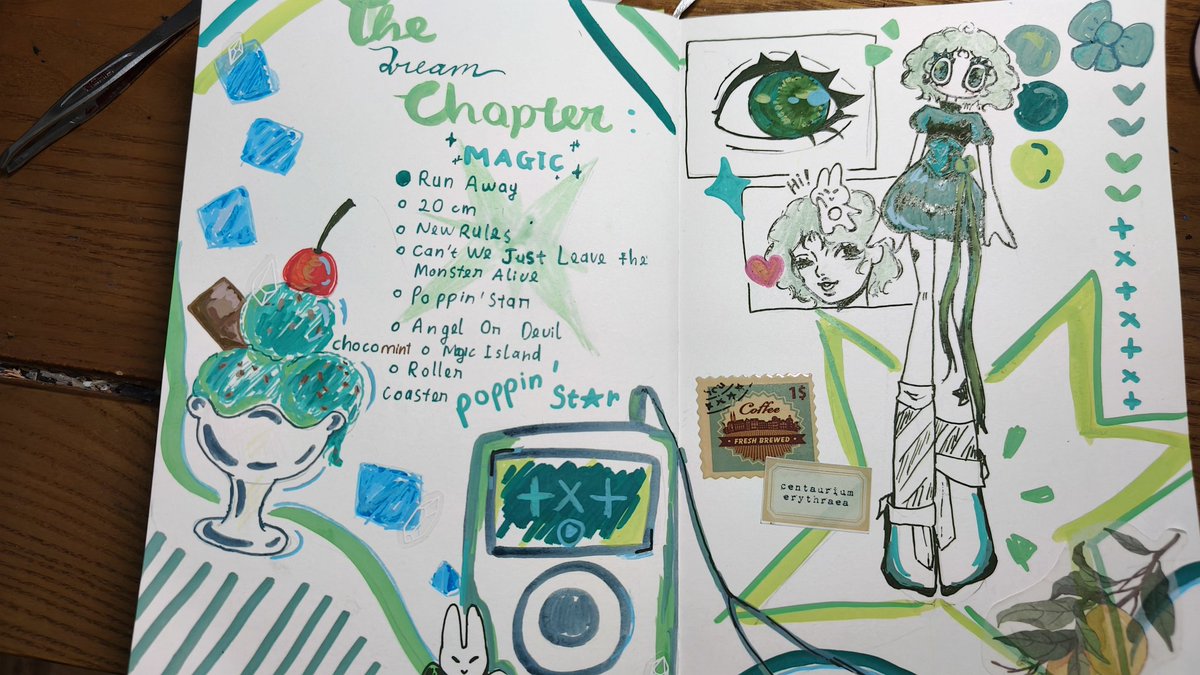 The
Dream
Chapter:
MAGIC
Run Away
20 cm
New Rules
Can't We Just Leave the
Monster Alive
Poppin' Star
Angel Or Devil
chocomint
Magic Island
Roller
Coaster
poppin' st★r
+x+
Hi!
1$
Coffee
FRESH BREWED
centaurium
erythraea
+
x
+
x
+
x
+